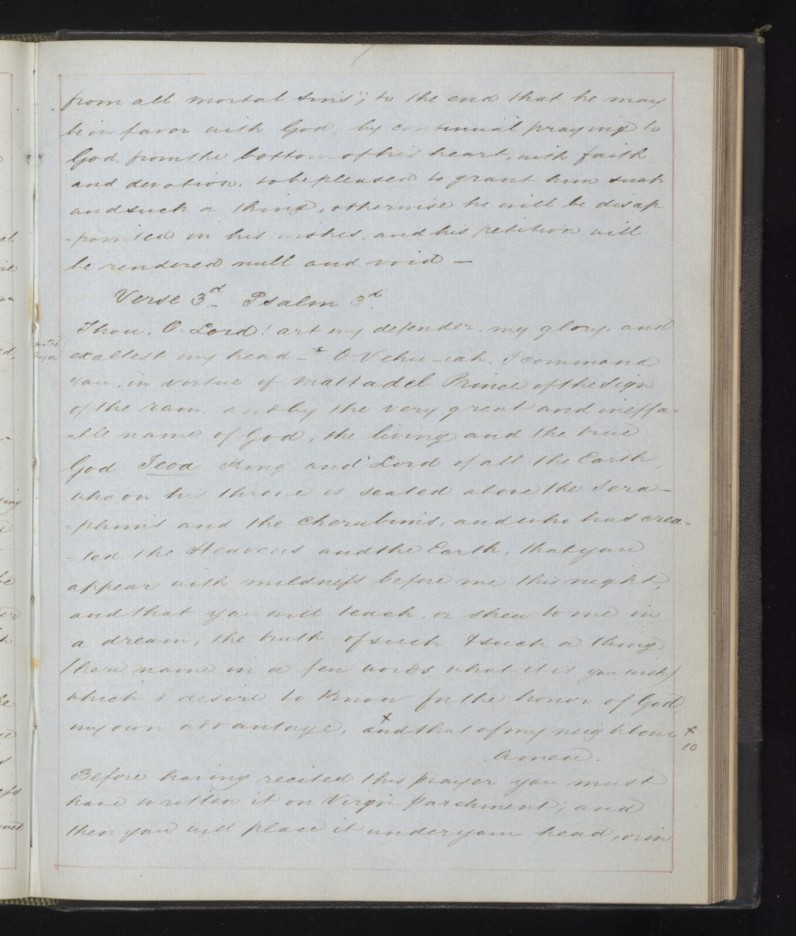 from all mortal sins"; to the end that he may
be in favor with God, by continual praying to
God from the bottom of his heart, with faith
and devotion, to be pleased to grant him such
and such a thing, otherwise he will be disap
-pointed in his wishes, and his petition will
be rendered null and void —
Verse 3d Psalm 3d
Thou, O Lord! art my defender, my glory, and
exaltest my head — x O Vehu-iah, I command
you, in virtue of Mattadel Prince of the Sign
of the ram, and by the very great and ineffa-
-ble name of God, the living and the true
God Jeoa King and Lord of all the Earth,
who on his throne is seated above the Sera-
-phims and the Cherubims, and who has crea-
-ted the Heavens and the Earth, that you
appear with mildness before me this night,
and that you will teach, or shew to me in
a dream, the truth of such & such a thing
(how name in a few words what it is you wish)
which I desire to know for the honor of God
my own advantage, x and that of my neighbour x
10
Amen.
Before having recited this prayer you must
have written it on Virgin parchment; and
then you will place it under your head, or in